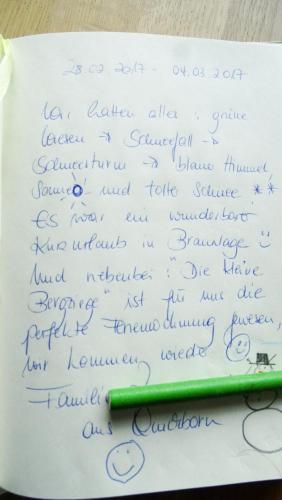 28.02.2017 - 04.03.2017
Wir hatten alles: grüne
Wiesen → Schneefall →
Schneesturm → blauer Himmel
Sonne und tolle Schnee **
Es war ein wunderbarer
Kurzurlaub in Braunlage
Und nebenbei: "Die kleine
Bergziege" ist für uns die
perfekte Ferienwohnung gewesen,
wir kommen wieder
Familie
aus Quickborn